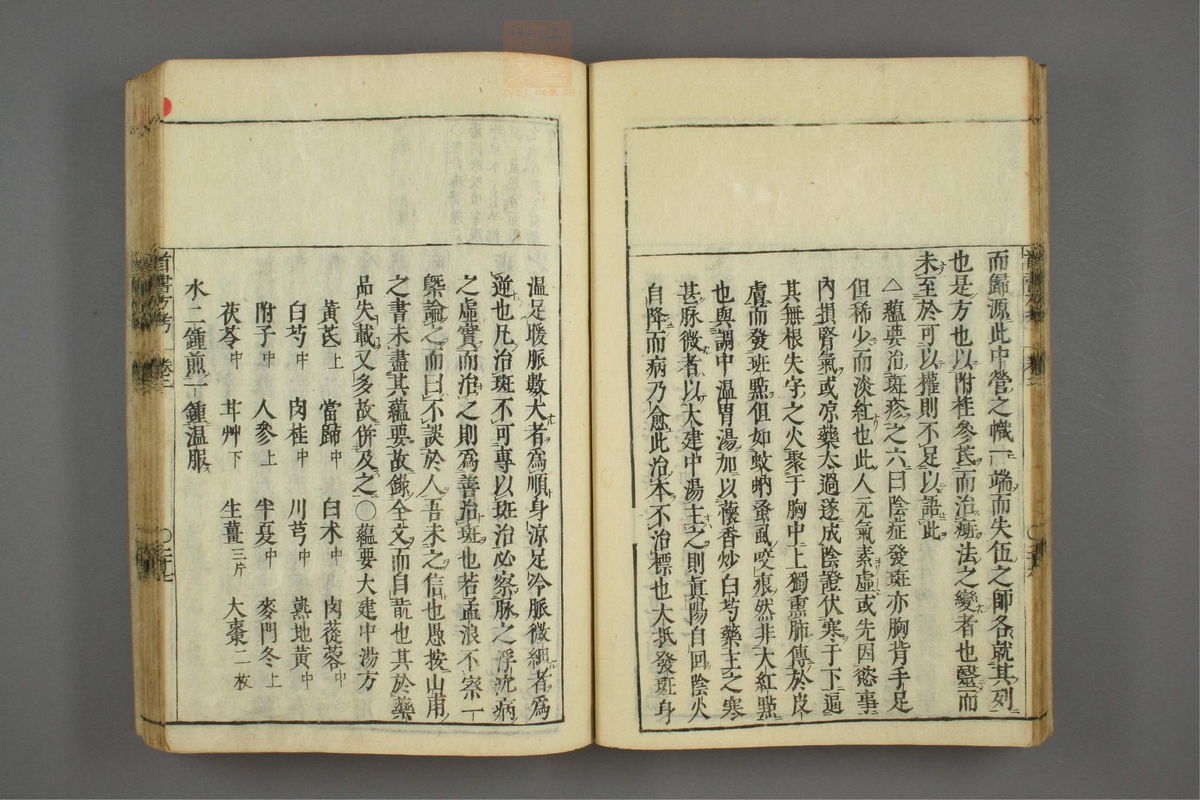 而歸源此中營之幟一端而失伍之師各就其列
也是方也以附桂參芪而治瘧法之變者也醫而
未至於可以權則不足以語此
△蘊要治斑疹之六曰陰症發斑亦胸背手足
但稀少而淡紅也此人元氣素虛或先因慾事
內損腎氣或凉藥太過遂成陰證伏寒于下逼
其無根失守之火聚于胸中上獨熏肺傳於皮
膚而發斑點但如蚊蚋蚤虱咬痕然非大紅點
也與調中溫胃湯加以藿香炒白芍藥主之寒
甚脉微者以大建中湯主之則眞陽自回陰火
自降而病乃愈此治本不治標也大抵發斑身
溫足暖脈數大者爲順身凉足冷脈微細者爲
逆也凡治斑不可專以斑治必察脈之浮沈病
之虛實而治之則爲善治斑也若孟浪不察一
槩論之而曰不誤於人吾未之信也愚按山甫
之書未盡其蘊要故錄全文而自翫也其於藥
品失載又多故併及之○蘊要大建中湯方
黃芪上 當歸中 白朮中 肉蓯蓉中
白芍中 肉桂中 川芎中 熟地黃中
附子中 人參上 半夏中 麥門冬上
茯苓中 甘艸下 生薑三片 大棗二枚
水二鍾煎一鍾溫服
首書方考 卷三 〇二十七